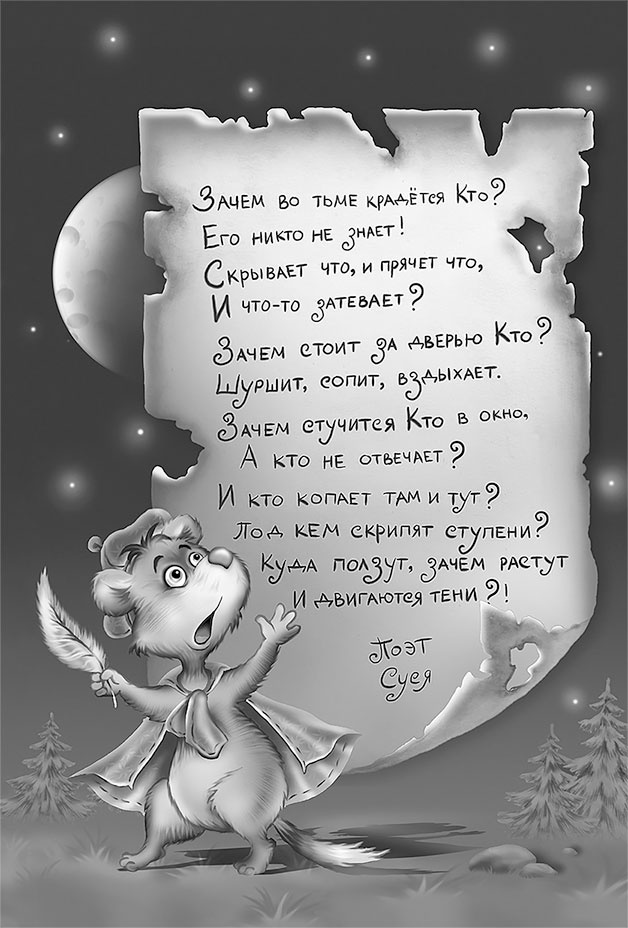 Зачем во тьме крадётся Кто?
Его никто не знает!
Скрывает что, и прячет что,
И что-то затевает?
Зачем стоит за дверью Кто?
Шуршит, сопит, вздыхает.
Зачем стучится Кто в окно,
А кто не отвечает?
И кто копает там и тут?
Под кем скрипят ступени?
Куда ползут, зачем растут
И двигаются тени?!
Поэт
Суея